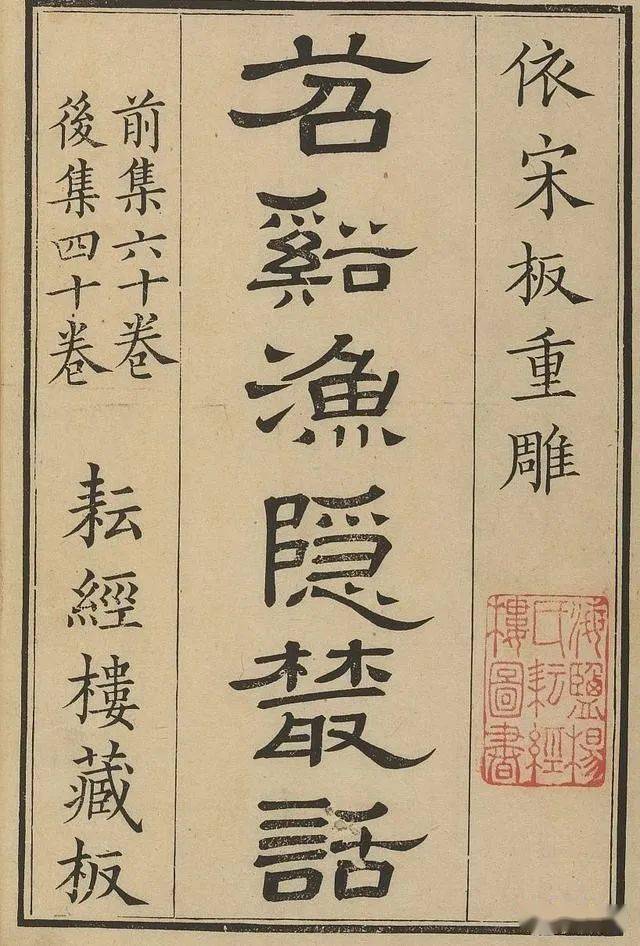 依宋板重雕
海鹽楊
氏耘經
樓圖書
苕谿漁隱叢話
前集六十卷
後集四十卷
耘經樓藏板